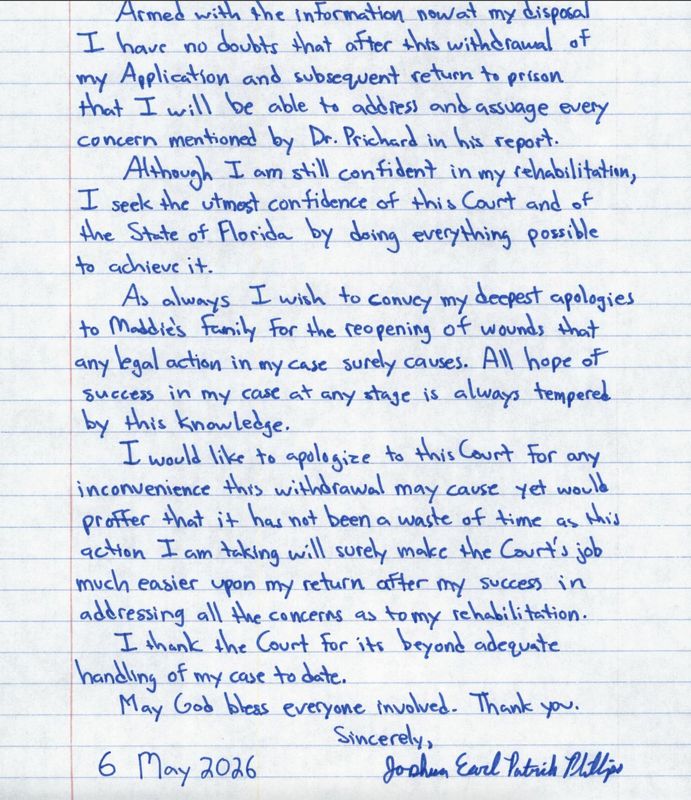 Armed with the information now at my disposal
I have no doubts that after this withdrawal of
my Application and subsequent return to prison
that I will be able to address and assuage every
concern mentioned by Dr. Prichard in his report.
Although I am still confident in my rehabilitation,
I seek the utmost confidence of this Court and of
the State of Florida by doing everything possible
to achieve it.
As always I wish to convey my deepest apologies
to Maddie's family for the reopening of wounds that
any legal action in my case surely causes. All hope of
success in my case at any stage is always tempered
by this knowledge.
I would like to apologize to this Court for any
inconvenience this withdrawal may cause yet would
proffer that it has not been a waste of time as this
action I am taking will surely make the Court's job
much easier upon my return after my success in
addressing all the concerns as to my rehabilitation.
I thank the Court for its beyond adequate
handling of my case to date.
May God bless everyone involved. Thank you.
Sincerely,
6 May 2026 Joshua Earl Patrick Phillips